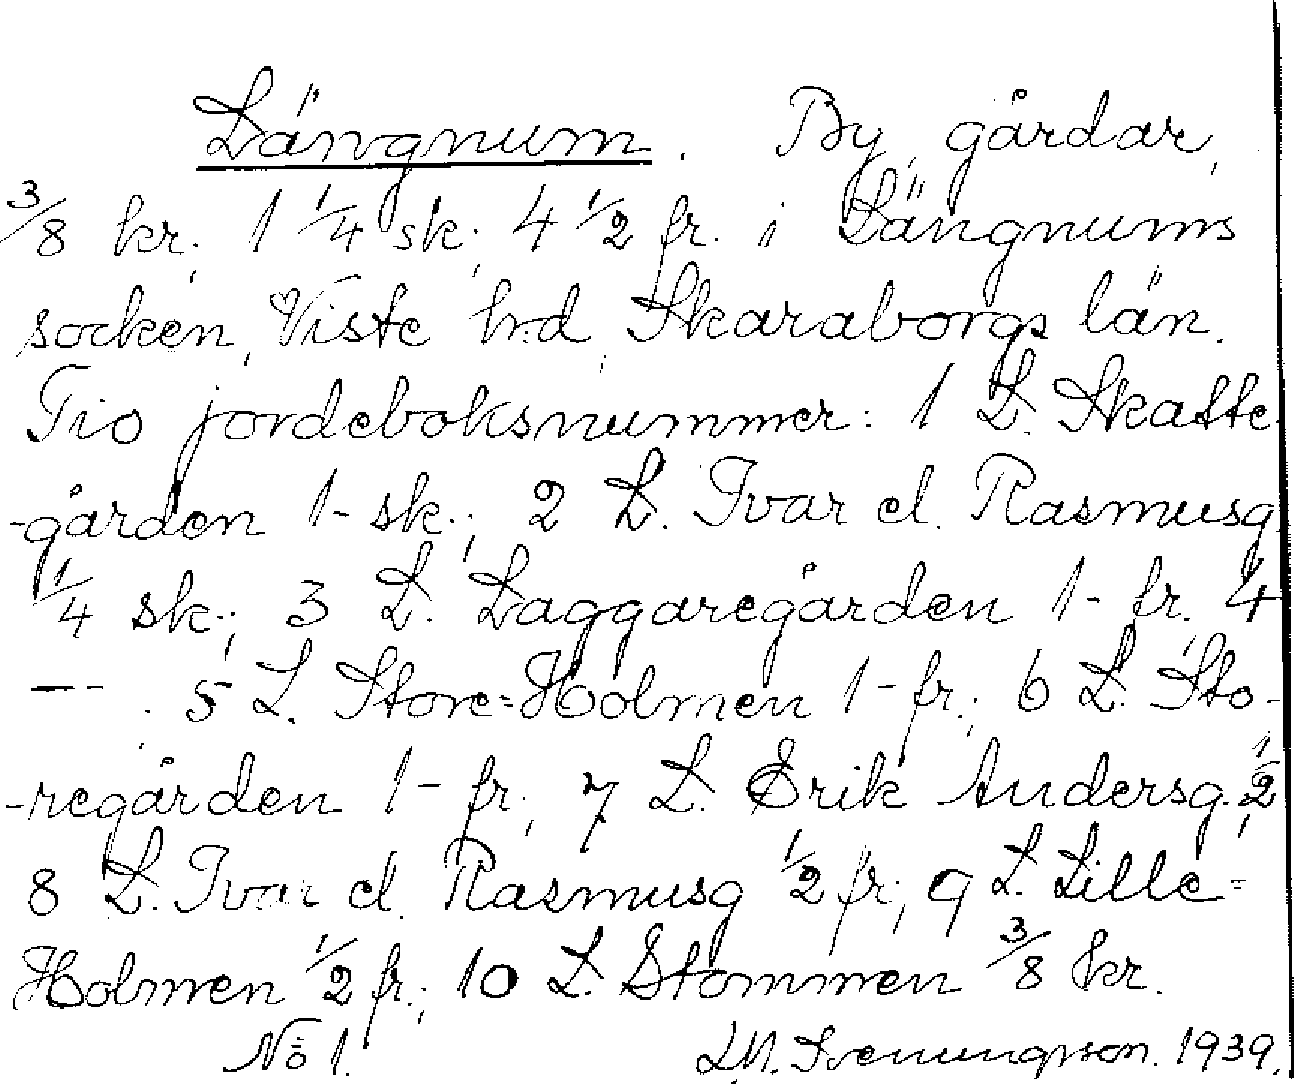 Längnum. By, gårdar,
3/8 kr; 1 1/4 sk; 4 1/2 fr. i Längnums
socken, Viste hrd, Skaraborgs län.
Tio jordeboksnummer: 1 L. Skatte-
-gården 1- sk.; 2 L. Ivar el. Rasmusg
1/4 sk.; 3 L. Laggaregården 1- fr. 4
-- . 5 L. Store=Holmen 1- fr.; 6 L. Sto-
-regården 1- fr; 7 L. Erik Andersg. 1/2,
8 L. Ivar el. Rasmusg 1/2 fr; 9 L. Lille=
Holmen 1/2 fr.; 10 L. Stommen 3/8 kr.
No 1. L.M. Svenungsson. 1939.